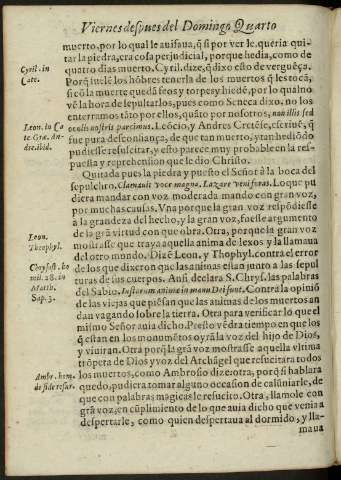 Viernes despues del Domingo Quarto
muerto, por lo qual le auisaua, q̃ si por ver le queria qui-
tar la piedra, era cosa perjudicial, porque hedia, como de
Cyril. in
Cate.
quatro dias muerto. Cyril. dize, q̃ dixo esto de verguẽça.
Porq̃ suelẽ los hõbres tenerla de los muertos q̃ les tocã,
si cõ la muerte quedã feos y torpes y hiedẽ, por lo qual no
vè la hora de sepultarlos, pues como Seneca dixo, no los
enterramos tãto por ellos, quãto por nosotros, non illis sed
Leon. in Ca
te. Gre. An-
dre. ibid.
oculis nostris parcimus. Leõcio, y Andres Cretẽse, escriuẽ, q̃
fue pura desconfiança, de que tan muerto, y tan hediõdo
pudiesse resuscitar, y esto parece muy probable en la res-
puesta y reprehension que le dio Christo.
Quitada pues la piedra y puesto el Señor à la boca del
sepulchro. Clamauit voce magna. Lazare veni foras. Lo que pu
diera mandar con voz moderada mandò con gran voz,
por muchas causas. Vna porque la gran voz respõdiesse
à la grandeza del hecho, y la gran voz, fuesse argumento
de la grã virtud con que obra. Otra, porque la gran voz
Leon.
Theophyl.
mostrasse que traya aquella anima de lexos y la llamaua
del otro mundo. Dizẽ Leon. y Thophyl. contra el error
Chrysost. ho
mil. 28. in
Matth.
Sap. 3.
de los que dixeron que las animas estan junto a las sepul
turas de sus cuerpos. Ansi declara S. Chrys. las palabras
del Sabio. Iustorum animæ in manu Dei sunt. Contra la opiniõ
de las viejas que piẽsan que las animas de los muertos an
dan vagando sobre la tierra. Otra para verificar lo que el
mismo Señor auia dicho. Presto vẽdra tiempo en que los
q̃ estan en los monumẽtos oyrã la voz del hijo de Dios,
y viuiran. Otra porq̃ la grã voz mostrasse aquella vltima
trõpeta de Dios y voz del Archãgel que resucitara todos
Ambr. hom.
de fide resur.
los muertos, como Ambrosio dize: otra, porq̃ si hablara
quedo, pudiera tomar alguno ocasion de calũniarle, de
que con palabras magicas le resucito. Otra, llamole con
grã voz, en cũplimiento de lo que auia dicho que venia a
despertarle, como quien despertaua al dormido, y lla-
maua